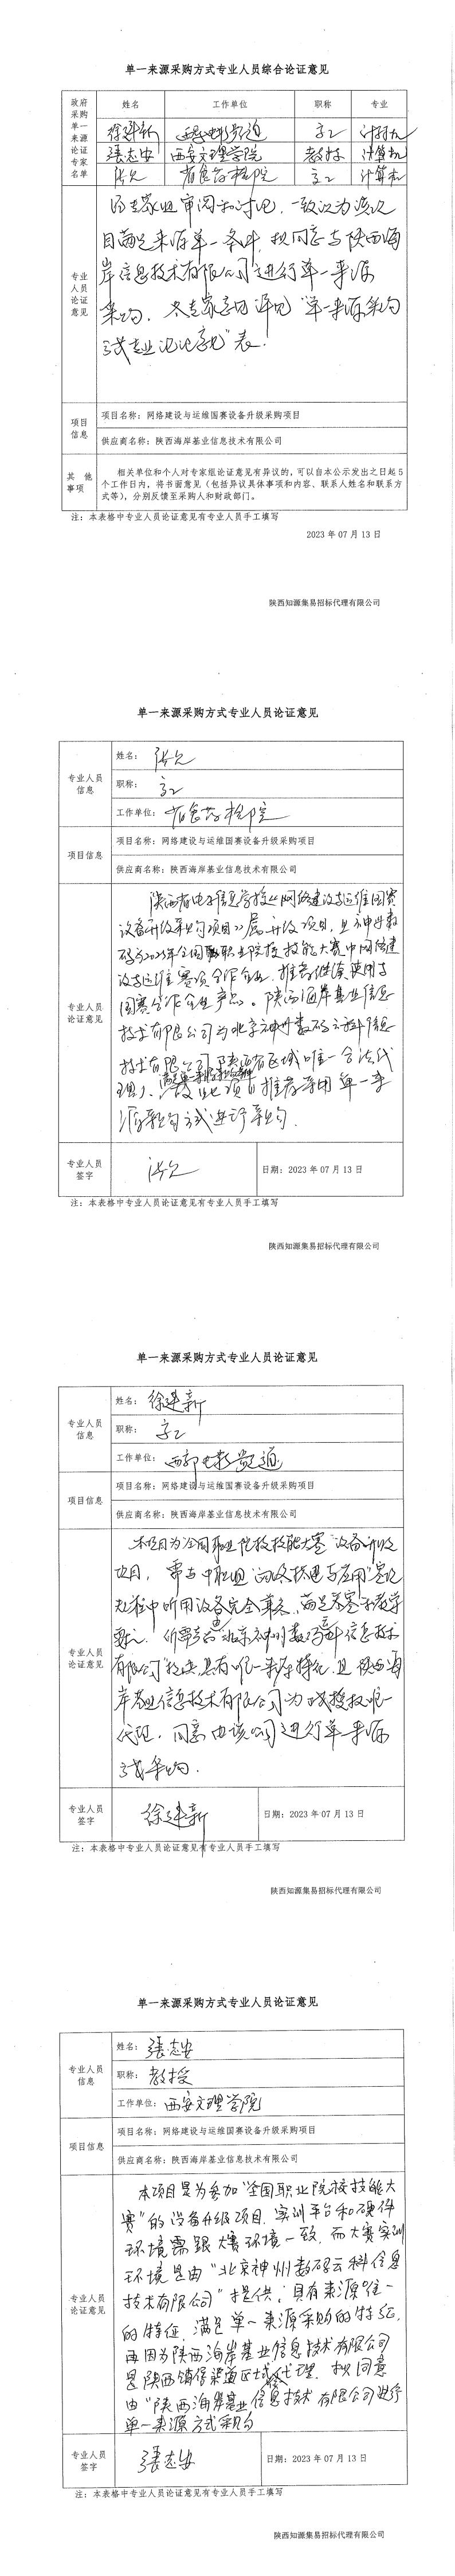 单一来源采购方式专业人员综合论证意见
政府采购单一来源论证专家名单
姓名 工作单位 职称 专业
徐建新 西部电影频道 高工 计算机
张志安 西安文理学院 教授 计算机
高工 计算机
专业人员论证意见
经专家组审阅和讨论,一致认为该项
目满足来源单一条件,拟同意与陕西海
岸信息技术有限公司进行单一来源
采购.
项目信息
项目名称:网络建设与运维国赛设备升级采购项目
供应商名称:陕西海岸基业信息技术有限公司
其他事项
相关单位和个人对专家组论证意见有异议的,可以自本公示发出之日起5
个工作日内,将书面意见(包括异议具体事项和内容、联系人姓名和联系方
式等),分别反馈至采购人和财政部门。
注:本表格中专业人员论证意见有专业人员手工填写
2023年07月13日
陕西知源集易招标代理有限公司
单一来源采购方式专业人员论证意见
专业人员信息
姓名:
职称:高工
工作单位:省食药检院
项目信息
项目名称:网络建设与运维国赛设备升级采购项目
供应商名称:陕西海岸基业信息技术有限公司
专业人员论证意见
陕西省电子信息学校《网络建设与运维国赛
设备升级采购项目》属升级项目,且神州数
码为2023年全国职业院校技能大赛中网络建
设与运维赛项合作企业,推荐继续使用与
国赛合作企业产品。陕西海岸基业信息
技术有限公司为北京神州数码云科信息
技术有限公司陕西省区域唯一合法代
理,
此项目推荐采用单一来
源采购方式进行采购.
专业人员签字
日期:2023年07月13日
注:本表格中专业人员论证意见有专业人员手工填写
陕西知源集易招标代理有限公司
单一来源采购方式专业人员论证意见
专业人员信息
姓名:徐建新
职称:高工
工作单位:西部电影频道
项目信息
项目名称:网络建设与运维国赛设备升级采购项目
供应商名称:陕西海岸基业信息技术有限公司
专业人员论证意见
本项目为"全国职业院校技能大赛"设备升级
项目,需与中职组"网络搭建与应用"赛项
中所用设备完全兼容,满足参赛和教学
要求.所需产品由"北京神州数码云科信息技术
有限公司"提供,具有唯一来源特征,且陕西海
岸基业信息技术有限公司为其授权唯一
代理,同意由该公司进行单一来源
方式采购.
专业人员签字 徐建新
日期:2023年07月13日
注:本表格中专业人员论证意见有专业人员手工填写
陕西知源集易招标代理有限公司
单一来源采购方式专业人员论证意见
专业人员信息
姓名:张志安
职称:教授
工作单位:西安文理学院
项目信息
项目名称:网络建设与运维国赛设备升级采购项目
供应商名称:陕西海岸基业信息技术有限公司
专业人员论证意见
本项目是为参加"全国职业院校技能大
赛"的设备升级项目,实训平台和硬件
环境需跟大赛环境一致,而大赛实训
环境是由"北京神州数码云科信息
技术有限公司"提供,具有来源唯一
的特征,满足单一来源采购的特征,
再因为陕西海岸基业信息技术有限公司
是陕西销售渠道区域总代理,拟同意
由"陕西海岸基业信息技术有限公司进行
单一来源方式采购
专业人员签字 张志安
日期:2023年07月13日
注:本表格中专业人员论证意见有专业人员手工填写
陕西知源集易招标代理有限公司